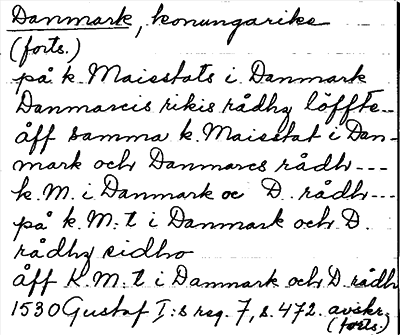 Danmark, konungarike
(forts.)
på k. Maiestats i Danmark
Danmarcis rikis rådhz löffte--
åff samma k. Maiestat i Dan-
mark och Danmarcs rådh---
k. M. i Danmark oc D. rådh---
på k. M:t i Danmark och D.
rådhz sidho
åff K. M:t i Danmark och D. rådh
1530 Gustaf I:s reg. 7, s. 472. avskr.
(forts.)